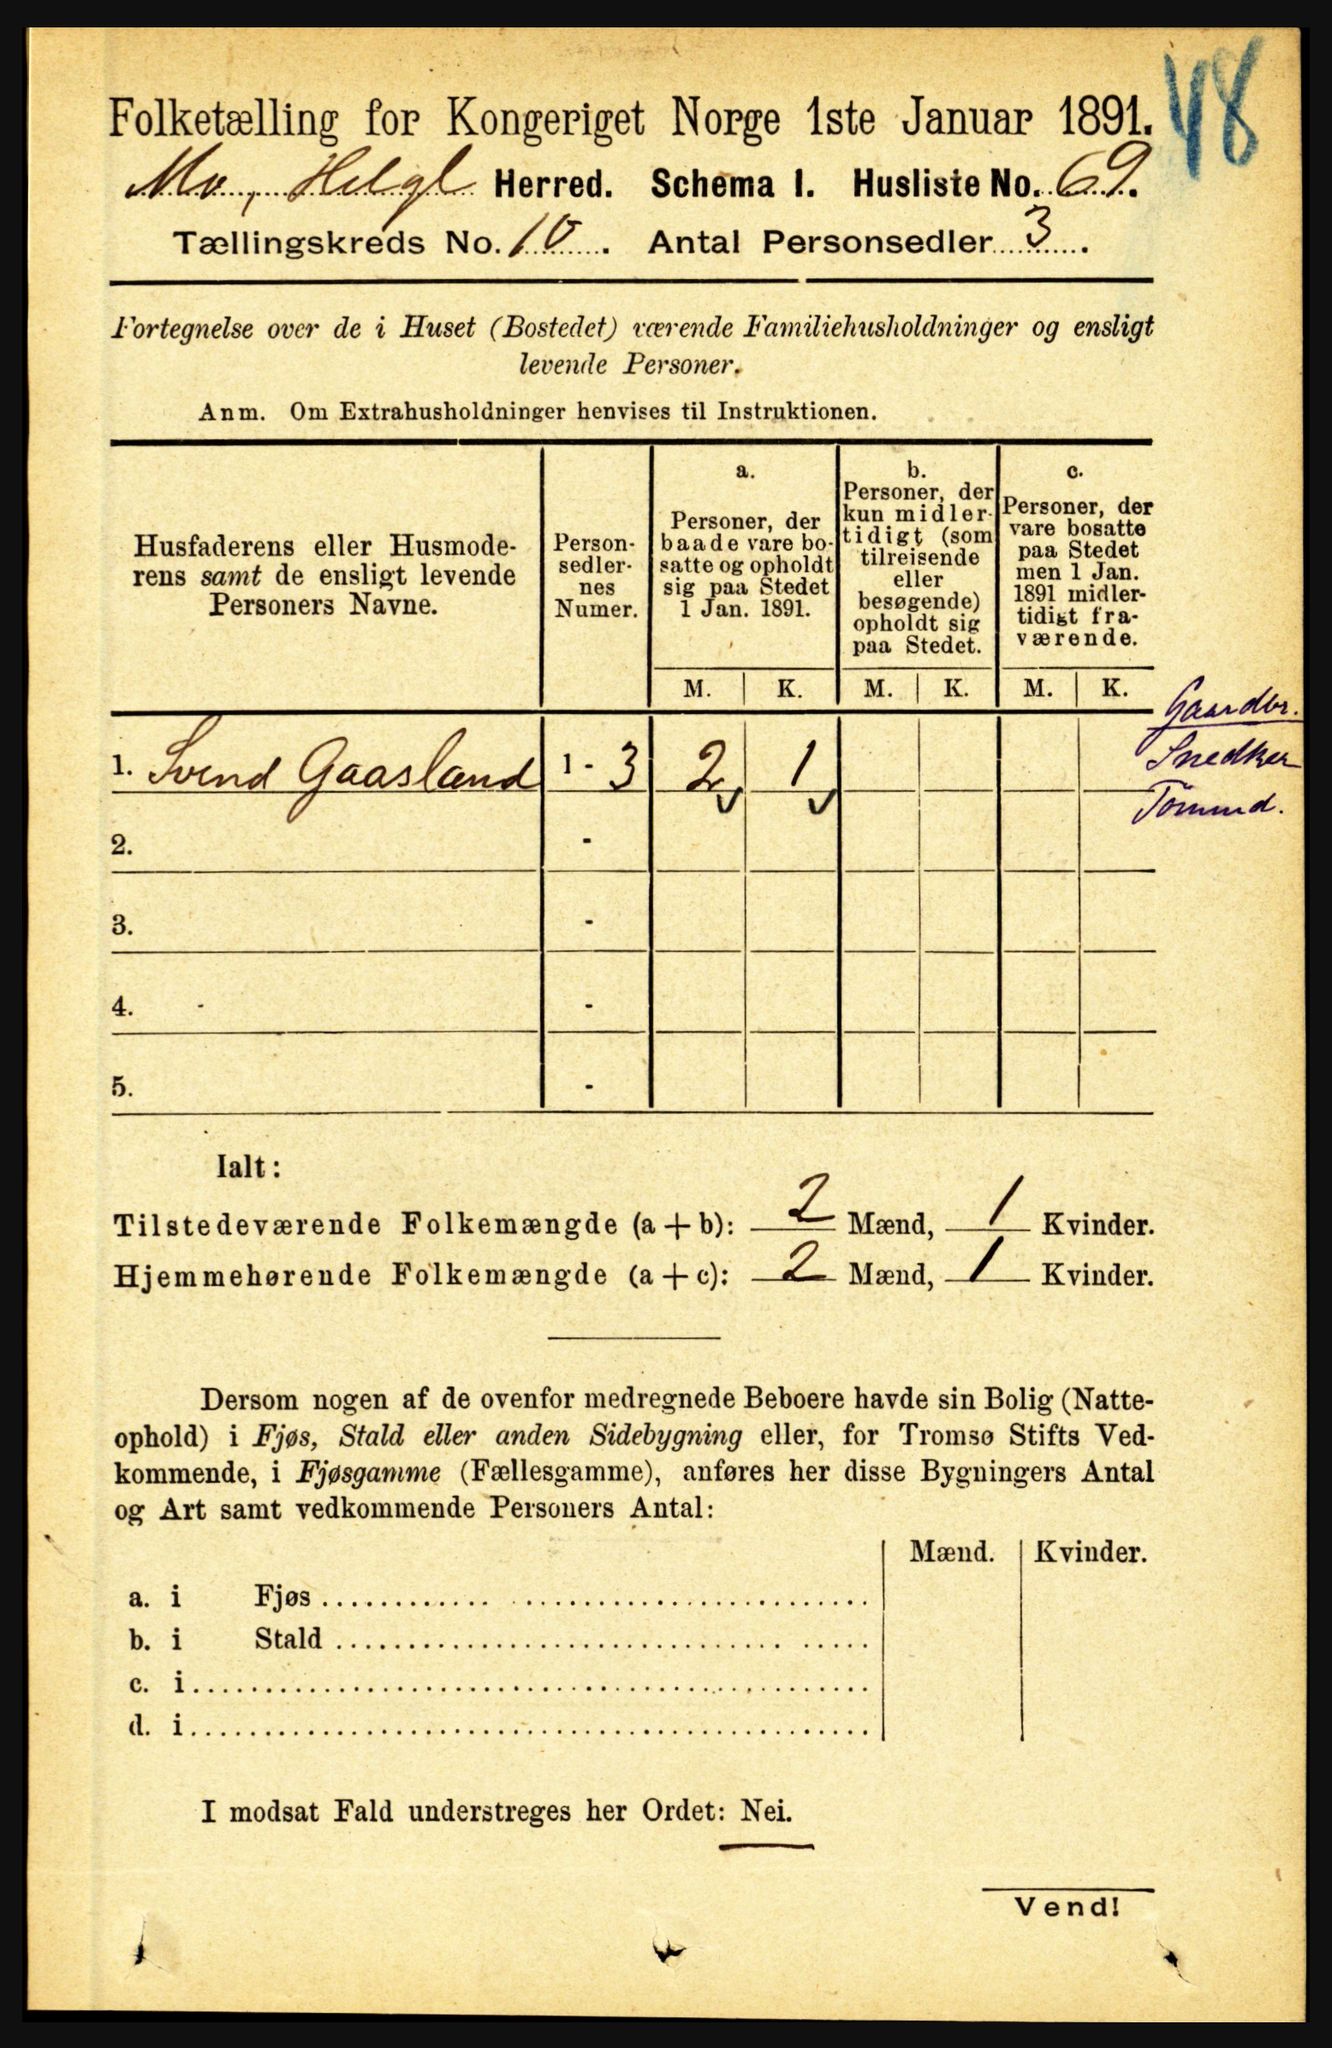 48
Folketælling for Kongeriget Norge 1ste Januar 1891.
Mo, Helgl Herred. Schema 1. Husliste No. 69.
Tællingskreds No. 10. Antal Personsedler 3.
Fortegnelse over de i Huset (Bostedet) værende Familiehusholdninger og ensligt
levende Personer.
Anm. Om Extrahusholdninger henvises til Instruktionen.
Husfaderens eller Husmode-
rens samt de ensligt levende
Personers Navne.
Person-
sedler-
nes
Numer.
a.
Personer, der
baade vare bo-
satte og opholdt
sig paa Stedet
1 Jan. 1891.
b.
Personer, der
kun midler-
tidigt (som
tilreisende
eller
besøgende)
opholdt sig
paa Stedet.
c.
Personer, der
vare bosatte
paa Stedet
men 1 Jan.
1891 midler-
tidigt fra-
værende.
M. K. M. K. M. K.
Gaardbr.
Snedker
1. Svend Gaasland 1 - 3 2 1
2. -
3. -
4. -
5. -
Ialt:
Tilstedeværende Folkemængde (a + b): 2 Mænd, 1 Kvinder.
Hjemmehørende Folkemængde (a + c): 2 Mænd, 1 Kvinder.
Dersom nogen af de ovenfor medregnede Beboere havde sin Bolig (Natte-
ophold) i Fjøs, Stald eller anden Sidebygning eller, for Tromsø Stifts Ved-
kommende, i Fjøsgamme (Fællesgamme), anføres her disse Bygningers Antal
og Art samt vedkommende Personers Antal:
Mænd. Kvinder.
a. i Fjøs
b. i Stald
c. i
d. i
I modsat Fald understreges her Ordet: Nei.
Vend!